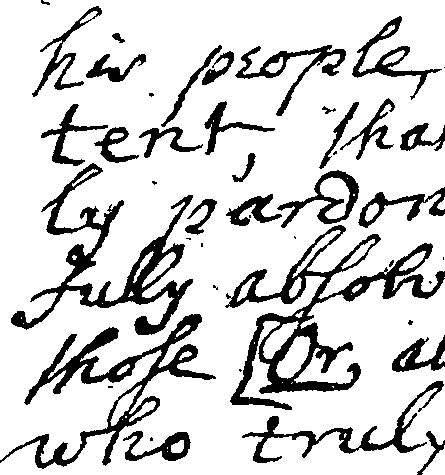 his people,
tent, that
ly pardon
fully absolv
those [Or, al
who truly